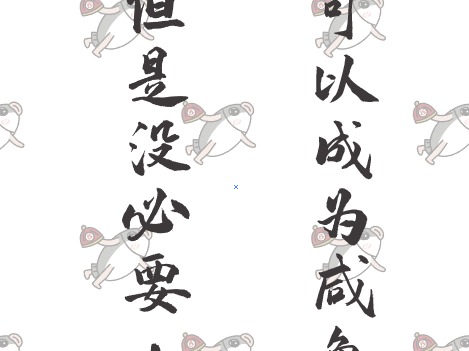 可以成为咸
但是没必要